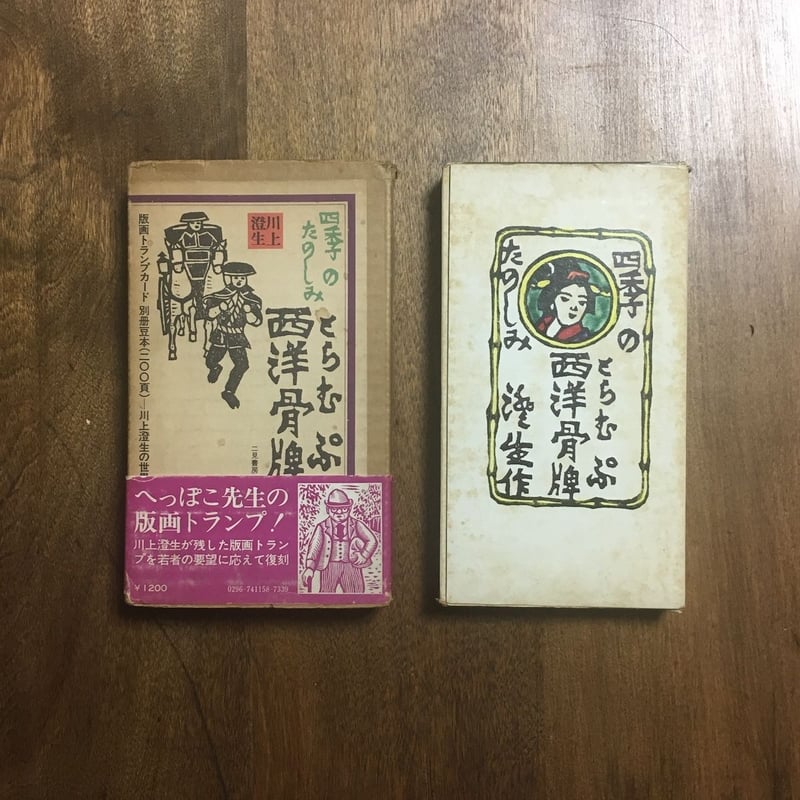 四季の
たのしみ
川上
澄生
とらむぷ
西洋骨牌
二見書房
版画トランプカード 別冊豆本(二〇〇頁)―川上澄生の世界
へっぽこ先生の
版画トランプ!
川上澄生が残した版画トラン
プを若者の要望に応えて復刻
¥1200
0296-741158-7339
四季の
たのしみ
とらむぷ
西洋骨牌
澄生作